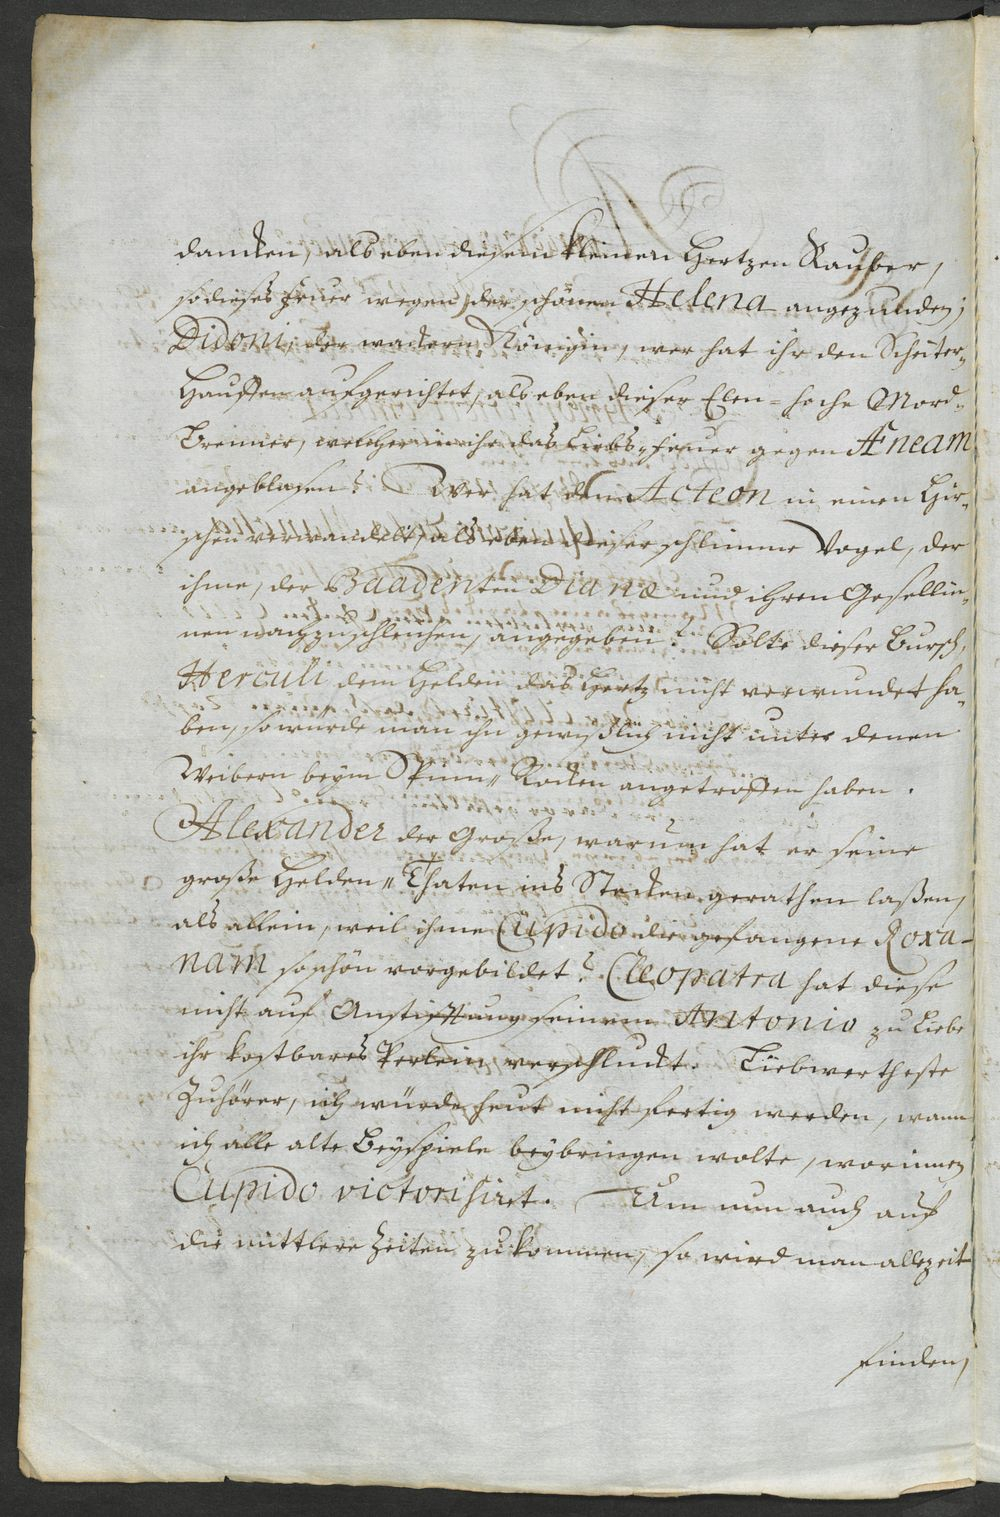 dancken, als eben diesem kleinen Hertzen Rauber,
so dieses Feuer wegen der schönen Helena angezunden;
Didoni, der wackern Königin, wer hat ihr den Scheiter-
Hauffen aufgerichtet, als eben dieser Elen-hoche Mord-
Brenner, welcher in ihr das Liebs-Feuer gegen Æneam
angeblasen? Wer hat den Acteon in einen Hir-
schen verwandelt, als eben dieser schlimme Vogel, der
ihme, der Baadenten Dianæ und ihren Gesellin-
nen nachzuschleichen, angegeben? Solte dieser Bursch,
Herculi dem Helden das Hertz nicht verwundet ha-
ben, so wurde man ihn gewißlich nicht unter denen
Weibern beym Spinn-Rocken angetroffen haben.
Alexander der Große, warum hat er seine
große Helden-Thaten ins Stecken gerathen laßen,
als allein, weil ihme Cupido die gefangene Roxa-
nam so schön vorgebildet? Cleopatra hat diese
nicht auf Anstifftung seinem Antonio zu Liebe
ihr kostbares Perlein verschluckt. Liebwertheste
Zuhörer, ich würde heut nicht fertig werden, wann
ich alle alte Beyspiele beybringen wolte, worinnen
Cupido victorisiret. Um nun auch auf
die mittlere Zeiten zu kommen, so wird man allezeit
finden,